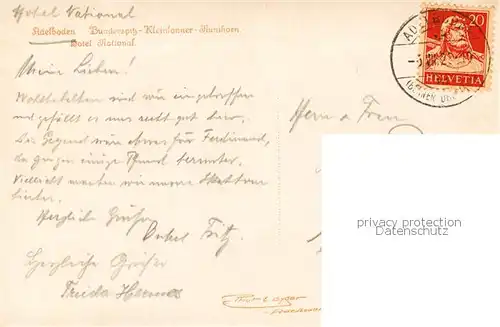 Hotel National
Adelboden Bunderspitz-Kleinlohner-Nünihorn
Hotel National.
Meine Lieben!
Wohlbehalten sind wir eingetroffen
und gefällt es uns recht gut hier.
Die Gegend wäre etwas für Ferdinand,
da gingen einige Pfund herunter.
Vielleicht machen wir unsere
Herzliche Grüße
Onkel Fritz.
Herzliche Grüße
Frieda
Herrn u. Frau
20
HELVETIA
(BERNER
privacy protection
Datenschutz